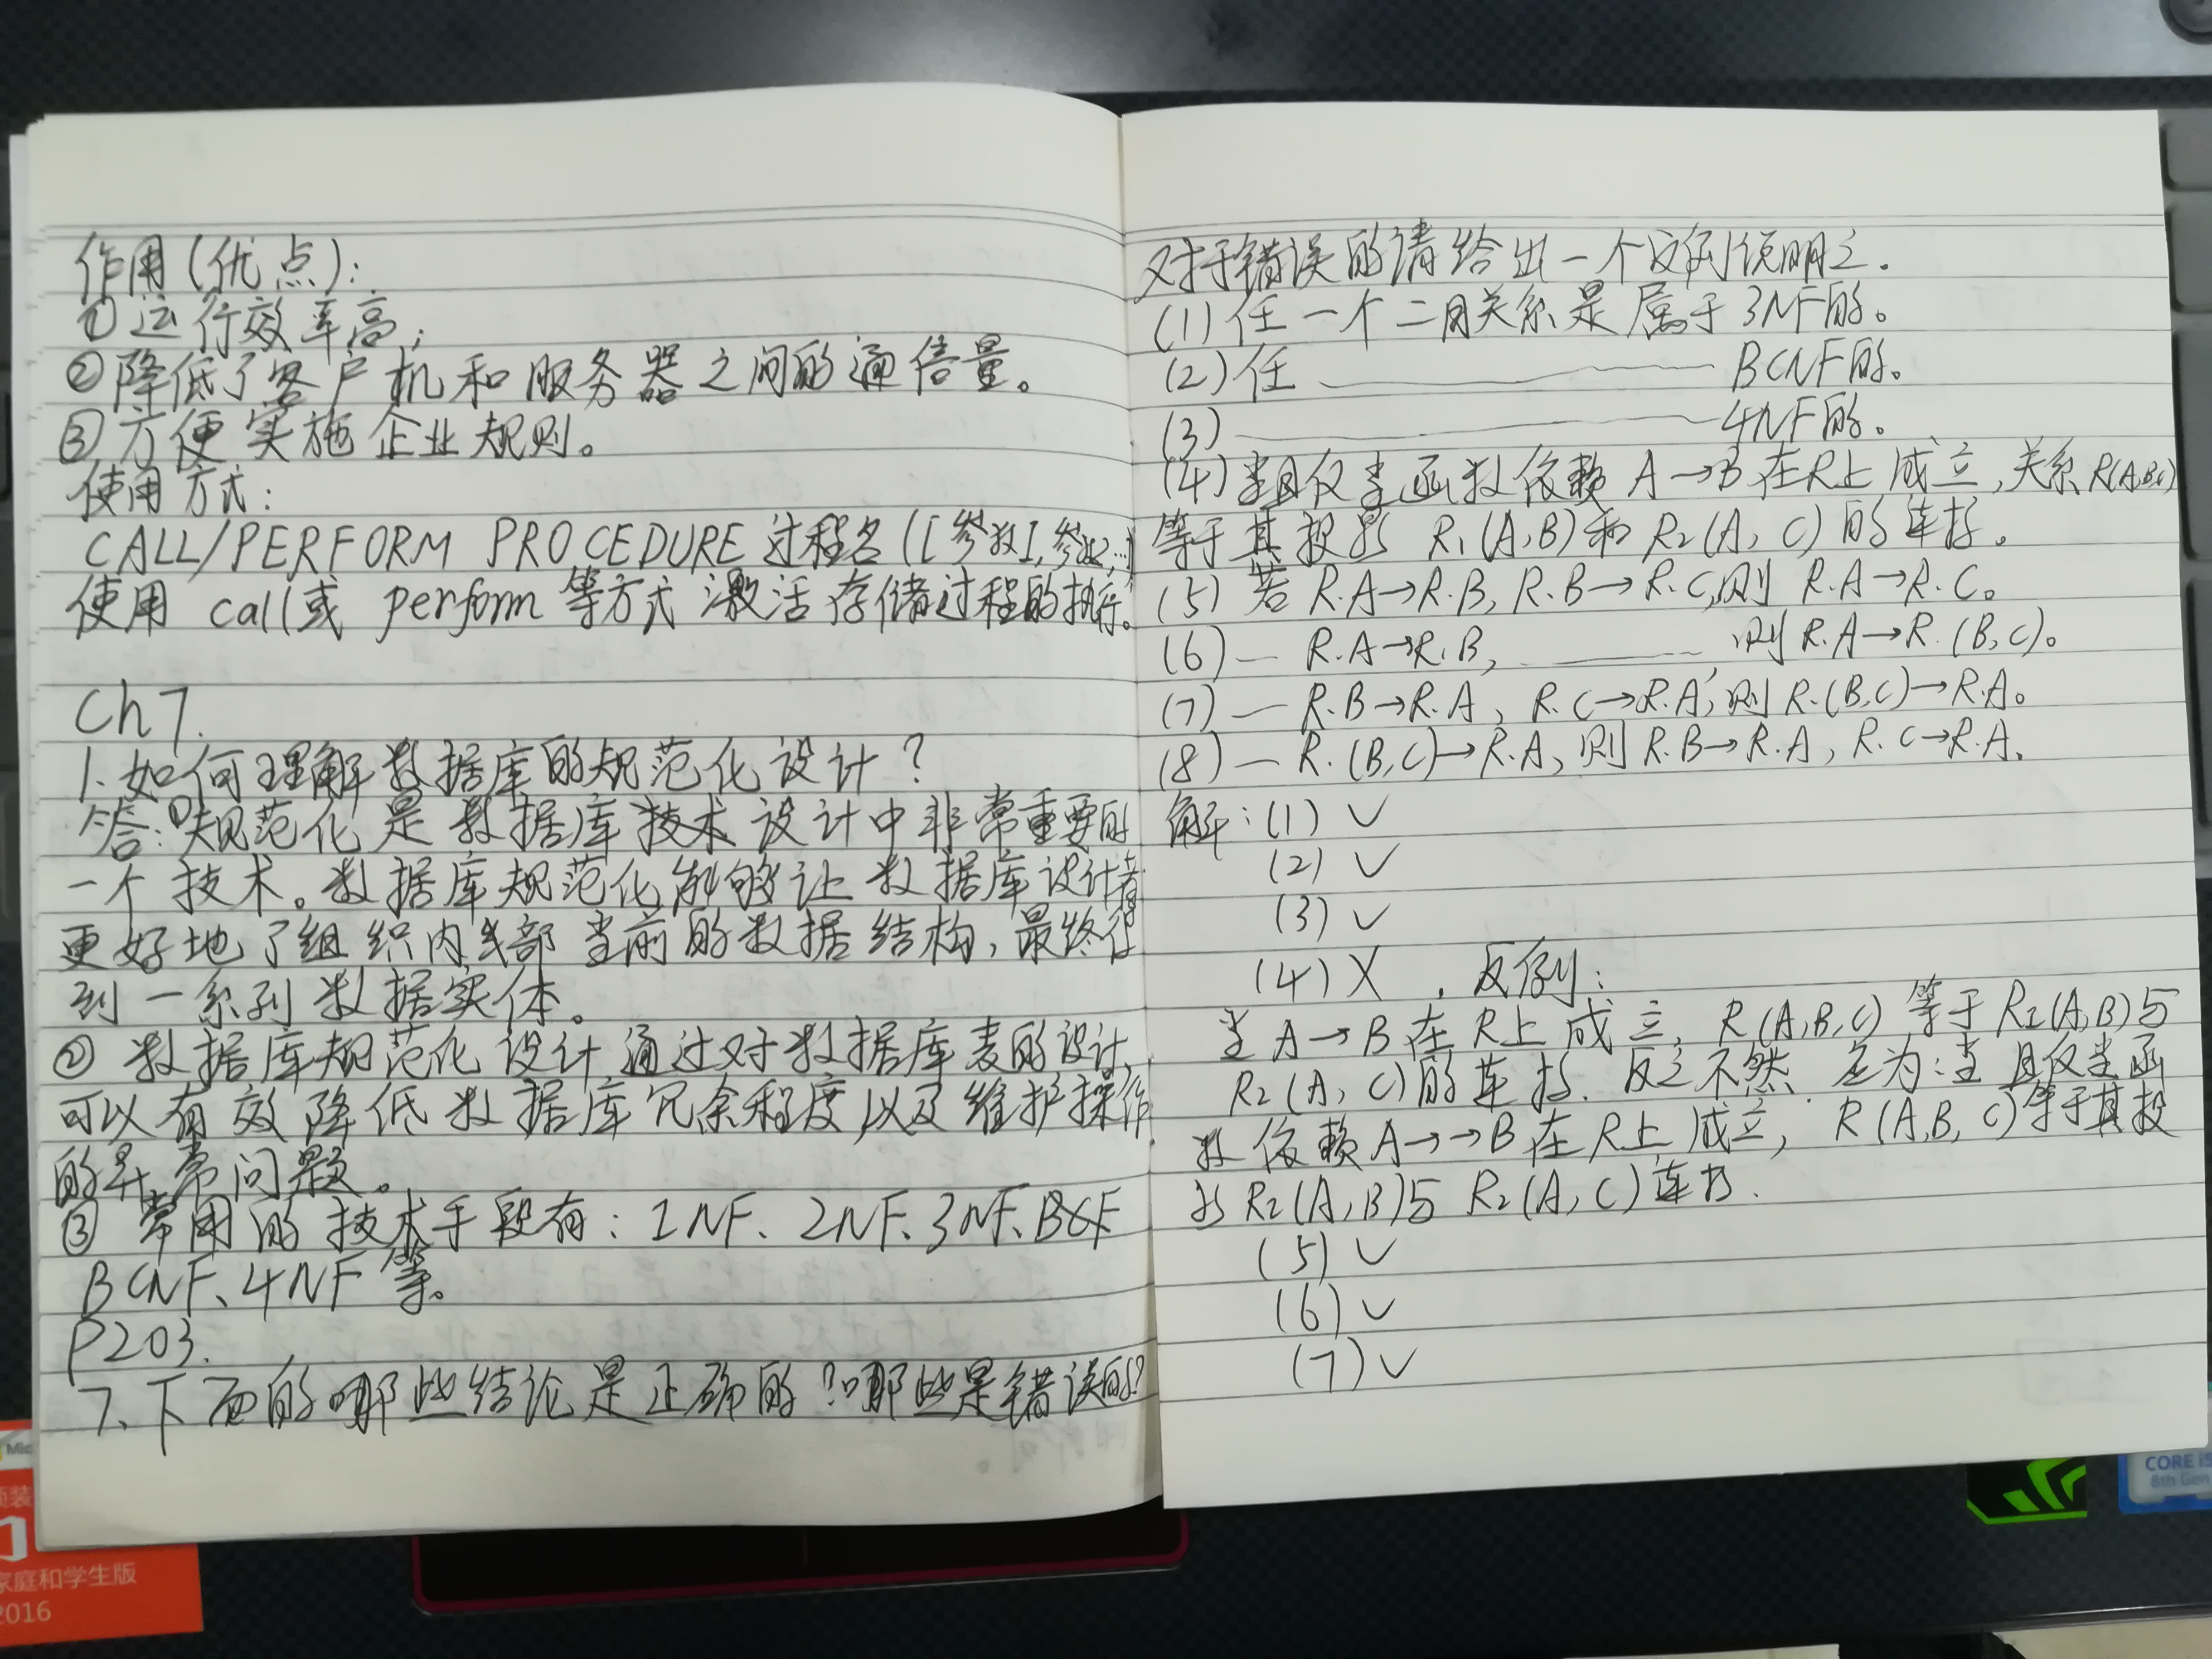 作用(优点):
①运行效率高;
②降低了客户机和服务器之间的通信量。
③方便实施企业规则。
使用方式:
CALL/PERFORM PROCEDURE 过程名([参数1,参数2,…])
使用 call或 perform 等方式激活存储过程的执行。
Ch7.
1.如何理解数据库的规范化设计?
答:①规范化是数据库技术设计中非常重要的
一个技术。数据库规范化能够让数据库设计者
更好地了组织内部当前的数据结构,最终得
到一系列数据实体。
② 数据库规范化设计通过对数据库表的设计,
可以有效降低数据库冗余程度,以及维护操作
的异常问题。
③ 常用的技术手段有:1NF、2NF、3NF、
BCNF、4NF等。
P203.
7、下面的哪些结论是正确的?哪些是错误的?
对于错误的请给出一个反例说明之.
(1)任一个二目关系是属于3NF的。
(2)任 —— BCNF的。
(3) —— 4NF的。
(4)当且仅当函数依赖 A→B在R上成立,关系R(A,B,C)
等于其投影 R₁(A,B)和R₂(A,C)的连接。
(5)若 R.A→R.B, R.B→R.C,则 R.A→R.C。
(6)— R.A→R.B, —— 则 R.A→R.(B,C)。
(7)— R.B→R.A, R.C→R.A,则 R.(B,C)→R.A。
(8)— R.(B,C)→R.A,则 R.B→R.A, R.C→R.A.
解:(1)✓
(2)✓
(3)✓
(4)X .反例:
当A→B在R上成立,R(A,B,C)等于R₁(A,B)与
R₂(A,C)的连接.反之不然.应为:当且仅当函
数依赖A→→B在R上成立,R(A,B,C)等于其投
影R₂(A,B)与R₂(A,C)连接.
(5)✓
(6)✓
(7)✓
CORE i5
8th Gen
家庭和学生版
2016